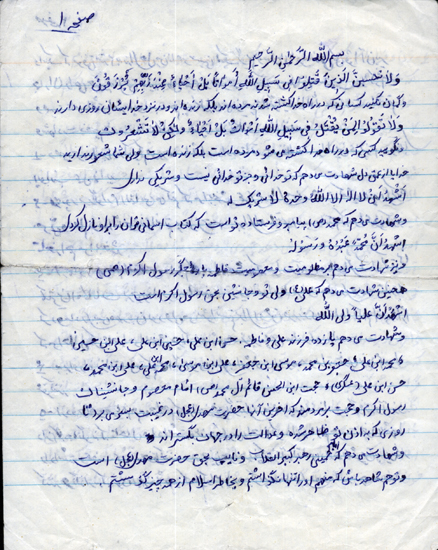 صفحه ۱
بسم الله الرّحمٰن الرّحیم
وَلا تحسبنَّ الّذینَ قُتِلوا فی سَبیلِ اللهِ أَمواتاً بَلْ أَحیاءٌ عِنْدَ رَبِّهِم یُرْزَقُونَ
و گمان نکنید کسانی که در راه خدا کشته شدند مرده اند بلکه زنده اند و در نزد خدایشان روزی دارند
وَلا تَقولُوا لِمَنْ یُقْتَلُ فی سَبیلِ اللهِ اَمْواتٌ بَلْ اَحیاءٌ وَلکِنْ لا تَشْعُرونَ
و نگویید کسی که در راه خدا کشته می شود مرده است بلکه زنده است ولی شما شعور ندارید
خدایا شهادت می دهم که تو خدائی و جز تو خدایی نیست و شریکی نداری
اَشْهَدُ اَنْ لا اِلهَ اِلّا اللهُ وَحْدَهُ لا شَریکَ لَه
و شهادت می دهم که محمد (ص) پیامبر و فرستاده تو است که کتاب آسمانی قرآن را بر او نازل کردی
اَشْهَدُ اَنَّ مُحَمَّداً عَبْدُهُ وَ رَسُولُهُ
و نیز شهادت می دهم بر مظلومیت و معصومیت فاطمه پاره جگر رسول اکرم (ص)
همچنین شهادت می دهم که علی (ع) ولی تو و جانشین بحق رسول اکرم است
اَشْهَدُ اَنَّ علیاً ولی الله
و شهادت می دهم یازده فرزند علی و فاطمه. حسن ابن علی، حسین ابن علی، علی ابن حسین
محمد ابن علی، جعفر بن محمد، موسی ابن جعفر، علی ابن موسی، محمد بن علی، علی ابن محمد،
حسن ابن علی (عسگری) و حجت ابن الحسن قائم آل محمد (ص) امام معصوم و جانشینان
رسول اکرم و حجت بر زمین که آخرین آنها حضرت مهدی (عجل) در غیبت بسر می برد تا
روزی که به اذن تو ظاهر شده و عدالت را در جهان بگستراند
و شهادت می دهم که خمینی رهبر کبیر انقلاب و نایب بحق حضرت مهدی (عجل) است
و تو هم شاهد باش که منهم او را تنها نگذاشتم و بخاطر اسلام از همه چیز گذشتم